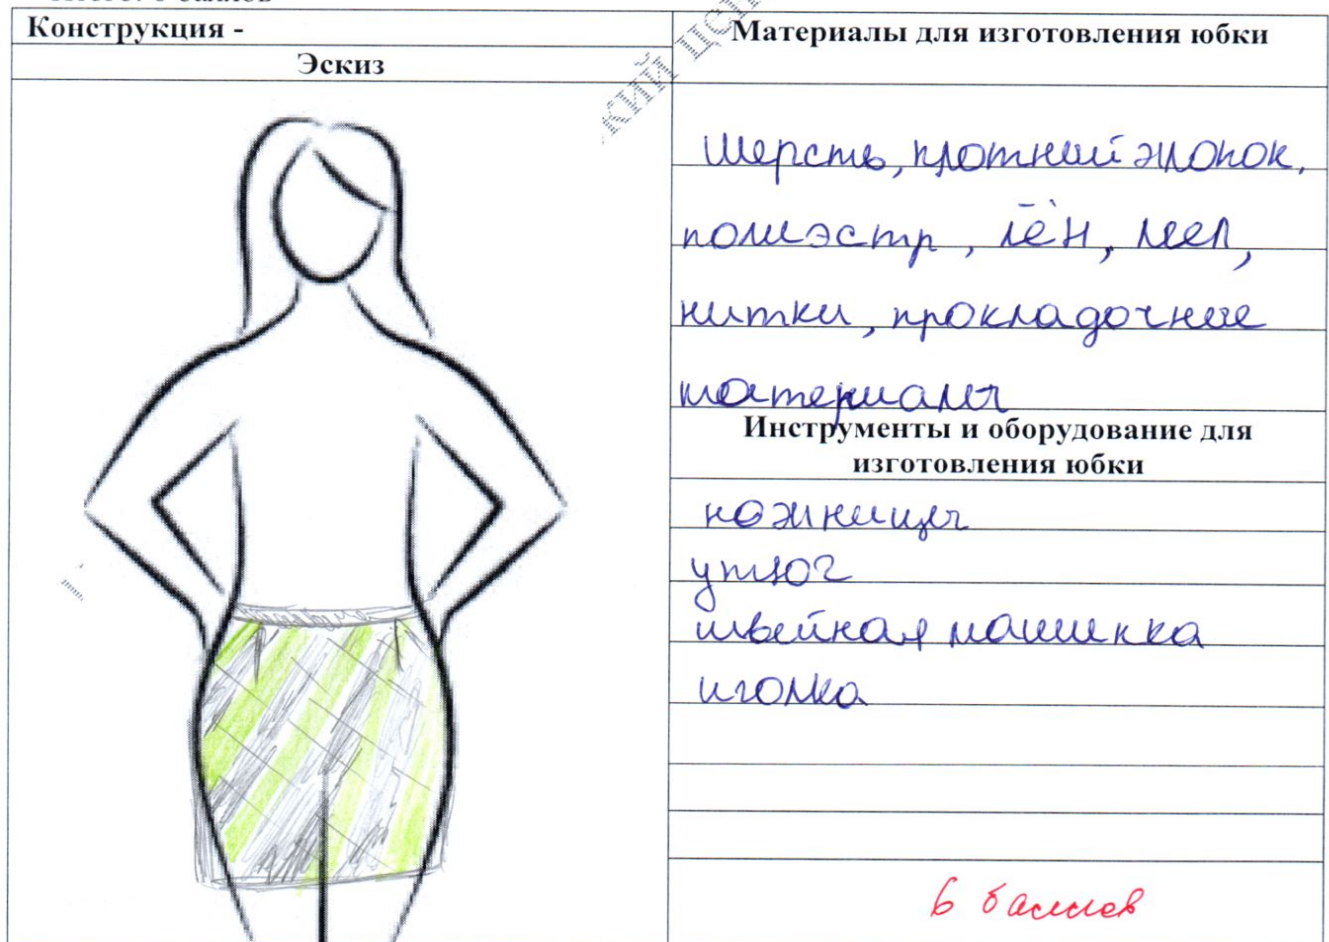 Конструкция -
Эскиз
Материалы для изготовления юбки
Шерсть, плотный хлопок,
полиэстр, лён, мел,
нитки, прокладочные
материалы
Инструменты и оборудование для
изготовления юбки
ножницы
утюг
швейная машинка
иголка
6 баллов